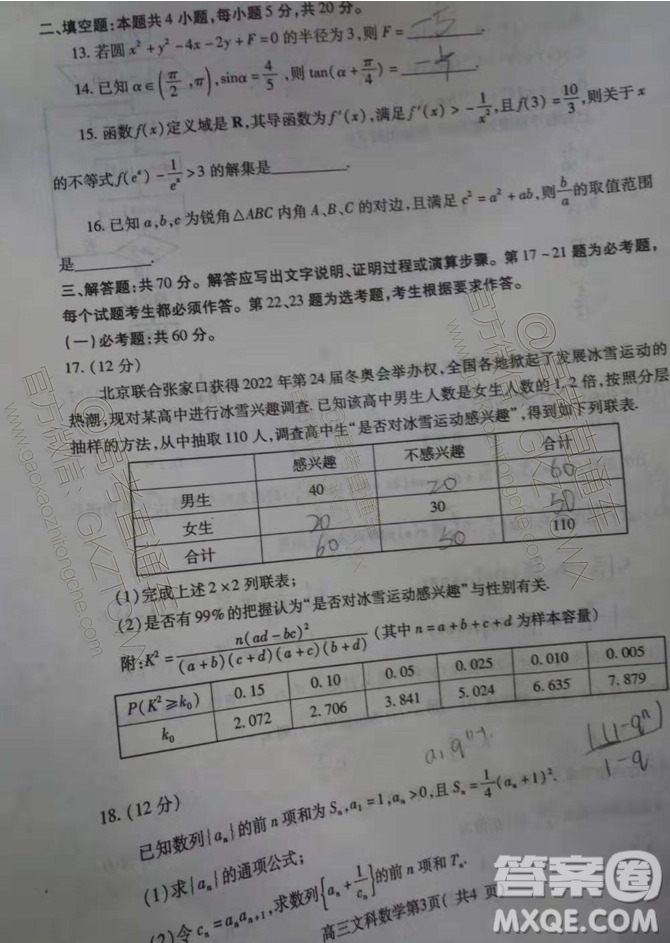 二、填空题:本题共4小题,每小题5分,共20分。
13. 若圆x²+y²-4x-2y+F=0的半径为3,则F= -5 .
14. 已知α∈(π/2,π),sinα=4/5,则tan(α+π/4)=
15. 函数f(x)定义域是R,其导函数为f′(x),满足f′(x)>-1/x²,且f(3)=10/3,则关于x
的不等式f(eˣ)-1/eˣ>3的解集是________.
16. 已知a,b,c为锐角△ABC内角A、B、C的对边,且满足c²=a²+ab,则b/a的取值范围
是________.
三、解答题:共70分。解答应写出文字说明、证明过程或演算步骤。第17~21题为必考题,
每个试题考生都必须作答。第22、23题为选考题,考生根据要求作答。
(一)必考题:共60分。
17. (12分)
北京联合张家口获得2022年第24届冬奥会举办权,全国各地掀起了发展冰雪运动的
热潮,现对某高中进行冰雪兴趣调查.已知该高中男生人数是女生人数的1.2倍,按照分层
抽样的方法,从中抽取110人,调查高中生“是否对冰雪运动感兴趣”,得到如下列联表.
感兴趣 不感兴趣 合计
男生 40 20 60
女生 20 30 50
合计 60 50 110
(1)完成上述2×2列联表;
(2)是否有99%的把握认为“是否对冰雪运动感兴趣”与性别有关.
附:K²=n(ad-bc)²/(a+b)(c+d)(a+c)(b+d)(其中n=a+b+c+d为样本容量)
P(K²≥k₀) 0.15 0.10 0.05 0.025 0.010 0.005
k₀ 2.072 2.706 3.841 5.024 6.635 7.879
a₁qⁿ⁻¹
1(1-qⁿ)
1-q
18. (12分)
已知数列{aₙ}的前n项和为Sₙ,a₁=1,aₙ>0,且Sₙ=1/4(aₙ+1)².
(1)求{aₙ}的通项公式;
(2)令cₙ=aₙaₙ₊₁,求数列{aₙ+1/cₙ}的前n项和Tₙ.
高三文科数学第3页(共4页)
官方微信:GKZTONG
www.gaokaozhitongche.com
@高考直通车
答案圈
MXQE.COM